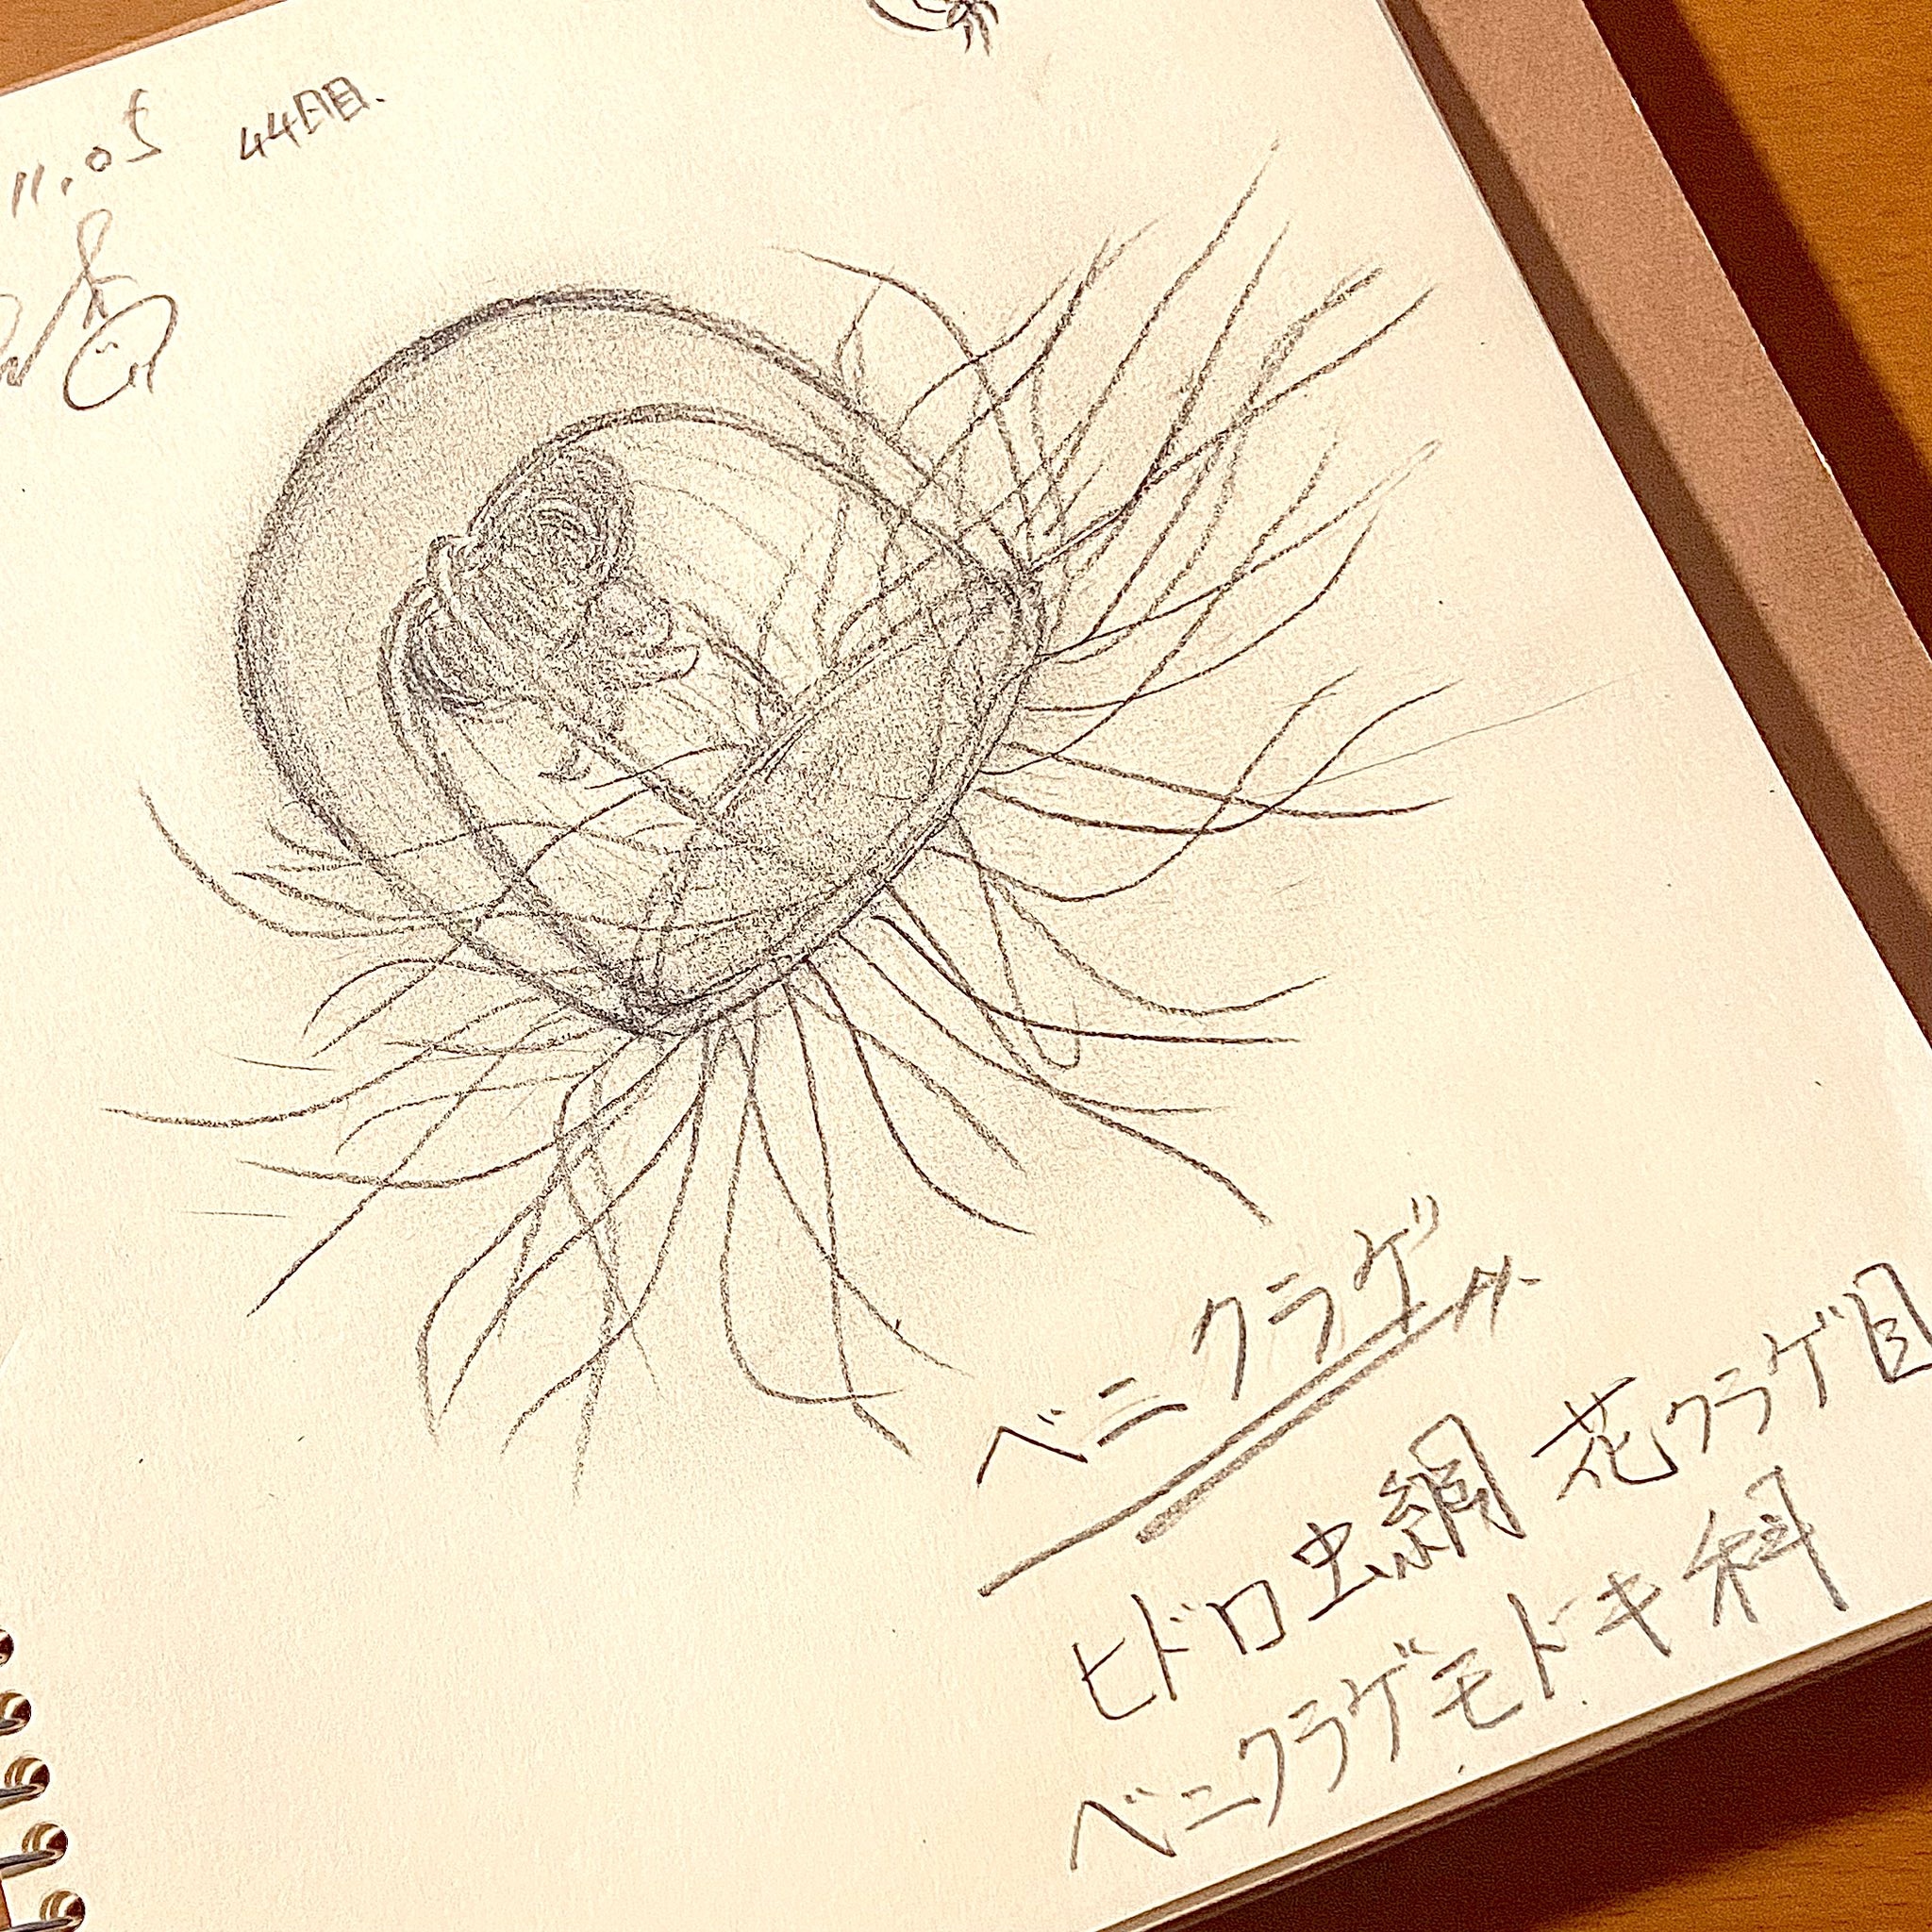 11.05 44日目.
ベニクラゲ
ヒドロ虫綱 花クラゲ目
ベニクラゲモドキ科